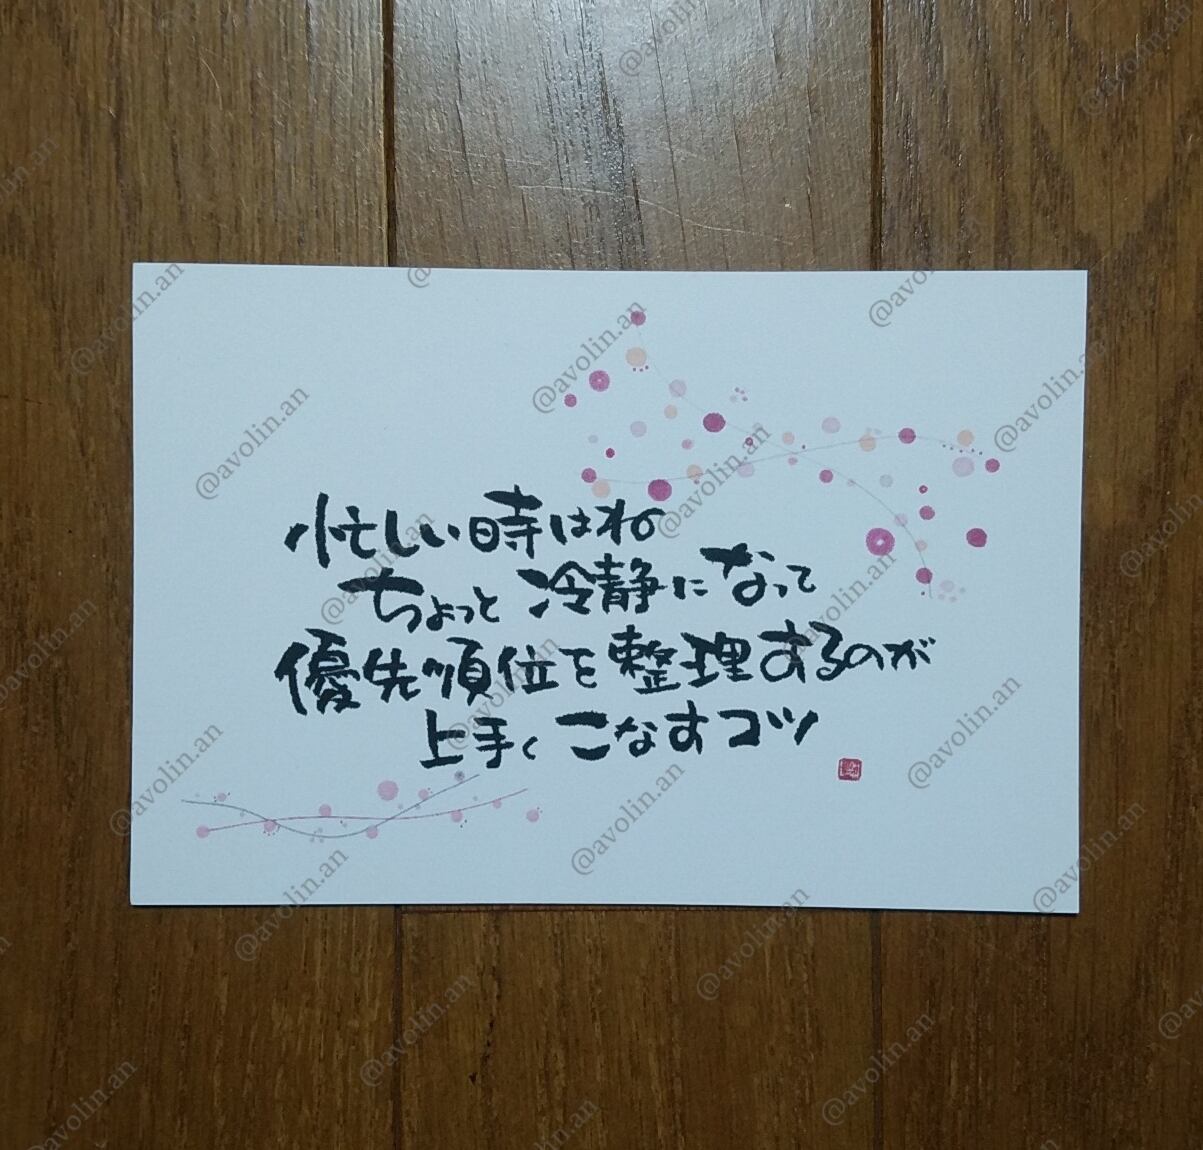 忙しい時はね
ちょっと冷静になって
優先順位を整理するのが
上手くこなすコツ
@avolin.an